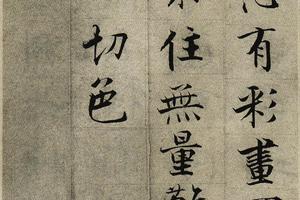 有彩畫
住無量
切色